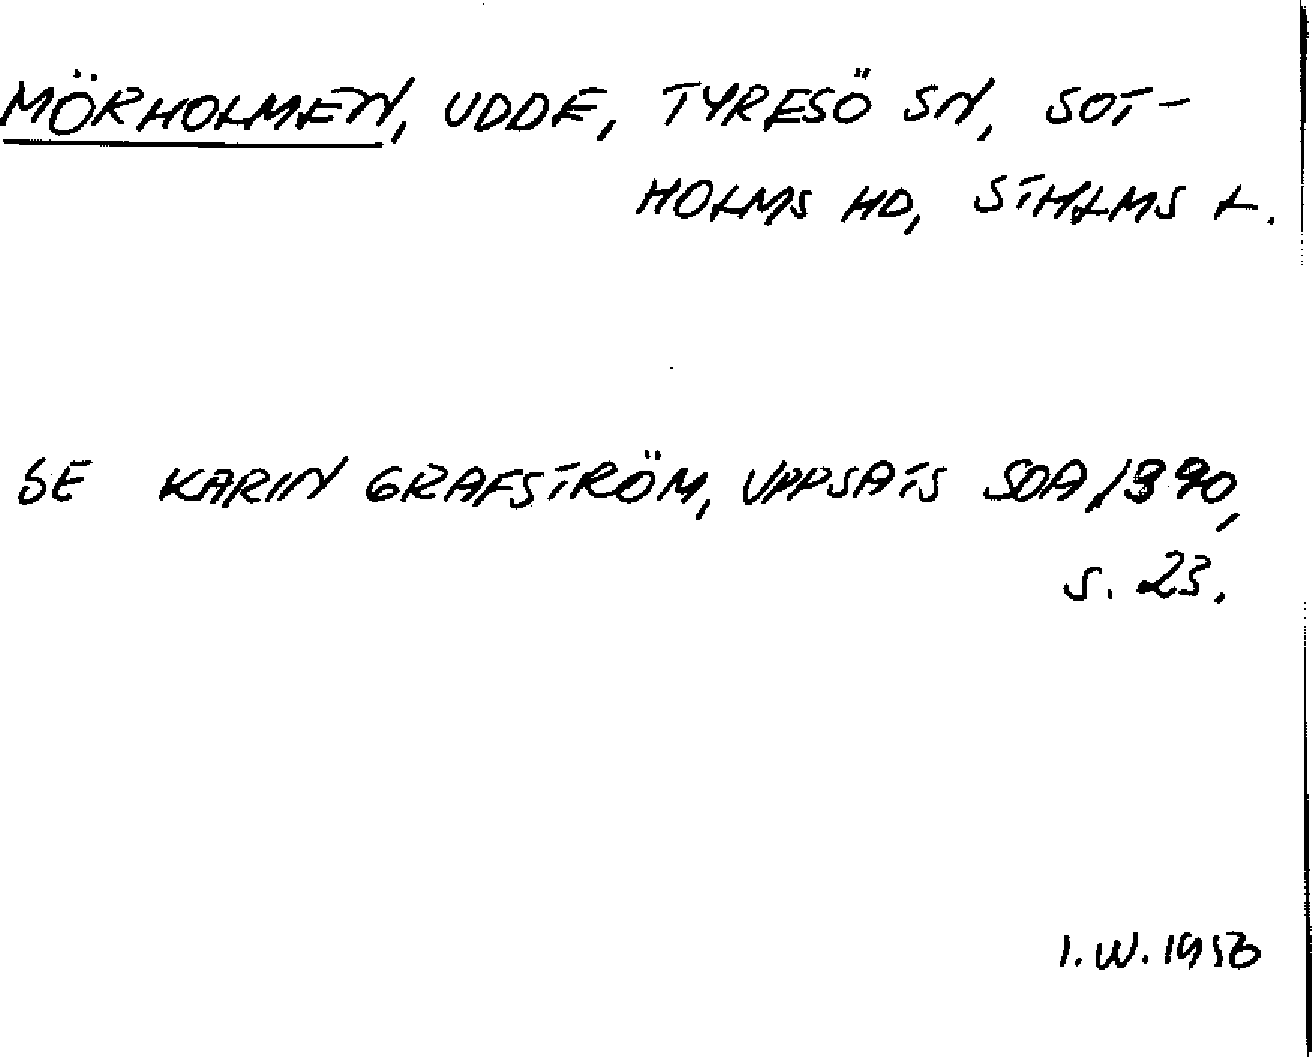 MÖRHOLMEN, UDDE, TYRESÖ SN, SOT-
HOLMS HD, STHLMS L.
SE KARIN GRAFSTRÖM, UPPSATS SOA 1390,
S. 23.
I. W.